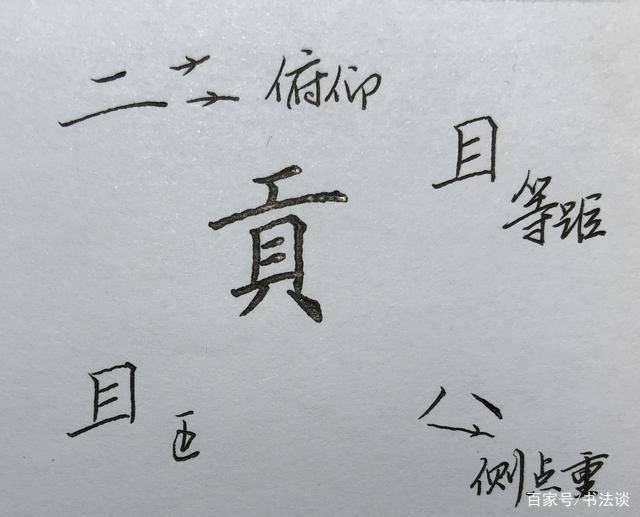 二 俯仰
目 等距
貢
目 正
八
侧点重
百家号/书法谈